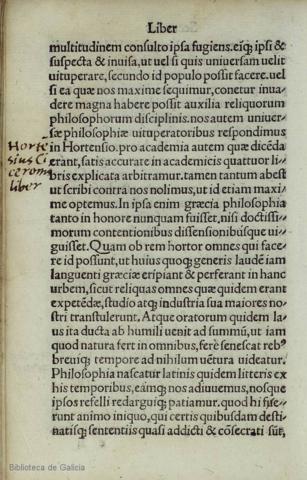 Liber
multitudinem consulto ipsa fugiens. eiq́; ipsi &
suspecta & inuisa, ut uel si quis uniuersam uelit
uituperare, secundo id populo possit facere. uel
si ea quæ nos maxime sequimur, conetur inua-
dere magna habere possit auxilia reliquorum
philosophorum disciplinis. nos autem uniuer-
sæ philosophiæ uituperatoribus respondimus
in Hortensio. pro academia autem quæ dicẽda
Horte
erant, satis accurate in academicis quattuor li-
sius Ci
bris explicata arbitramur. tamen tantum abest
ceronis
ut scribi contra nos nolimus, ut id etiam maxi-
liber
me optemus. In ipsa enim græcia philosophia
tanto in honore nunquam fuisset, nisi doctissi-
morum contentionibus dissensionibúsque ui-
guisset. Quam ob rem hortor omnes qui face-
re id possunt, ut huius quoq; generis laudẽ iam
languenti græciæ eripiant & perferant in hanc
urbem, sicut reliquas omnes quæ quidem erant
expetẽdæ, studio atq; industria sua maiores no-
stri transtulerunt. Atque oratorum quidem la-
us ita ducta ab humili uenit ad summũ, ut iam
quod natura fert in omnibus, ferè senescat reb9
breuiq́; tempore ad nihilum uẽtura uideatur.
Philosophia nascatur latinis quidem litteris ex
his temporibus, eámq; nos adiuuemus, nosque
ipsos refelli redarguiq; patiamur. quod hi ferunt
runt animo iniquo, qui certis quibusdam desti-
natisq; sententiis quasi addicti & cõsecrati sũt,
Biblioteca de Galicia